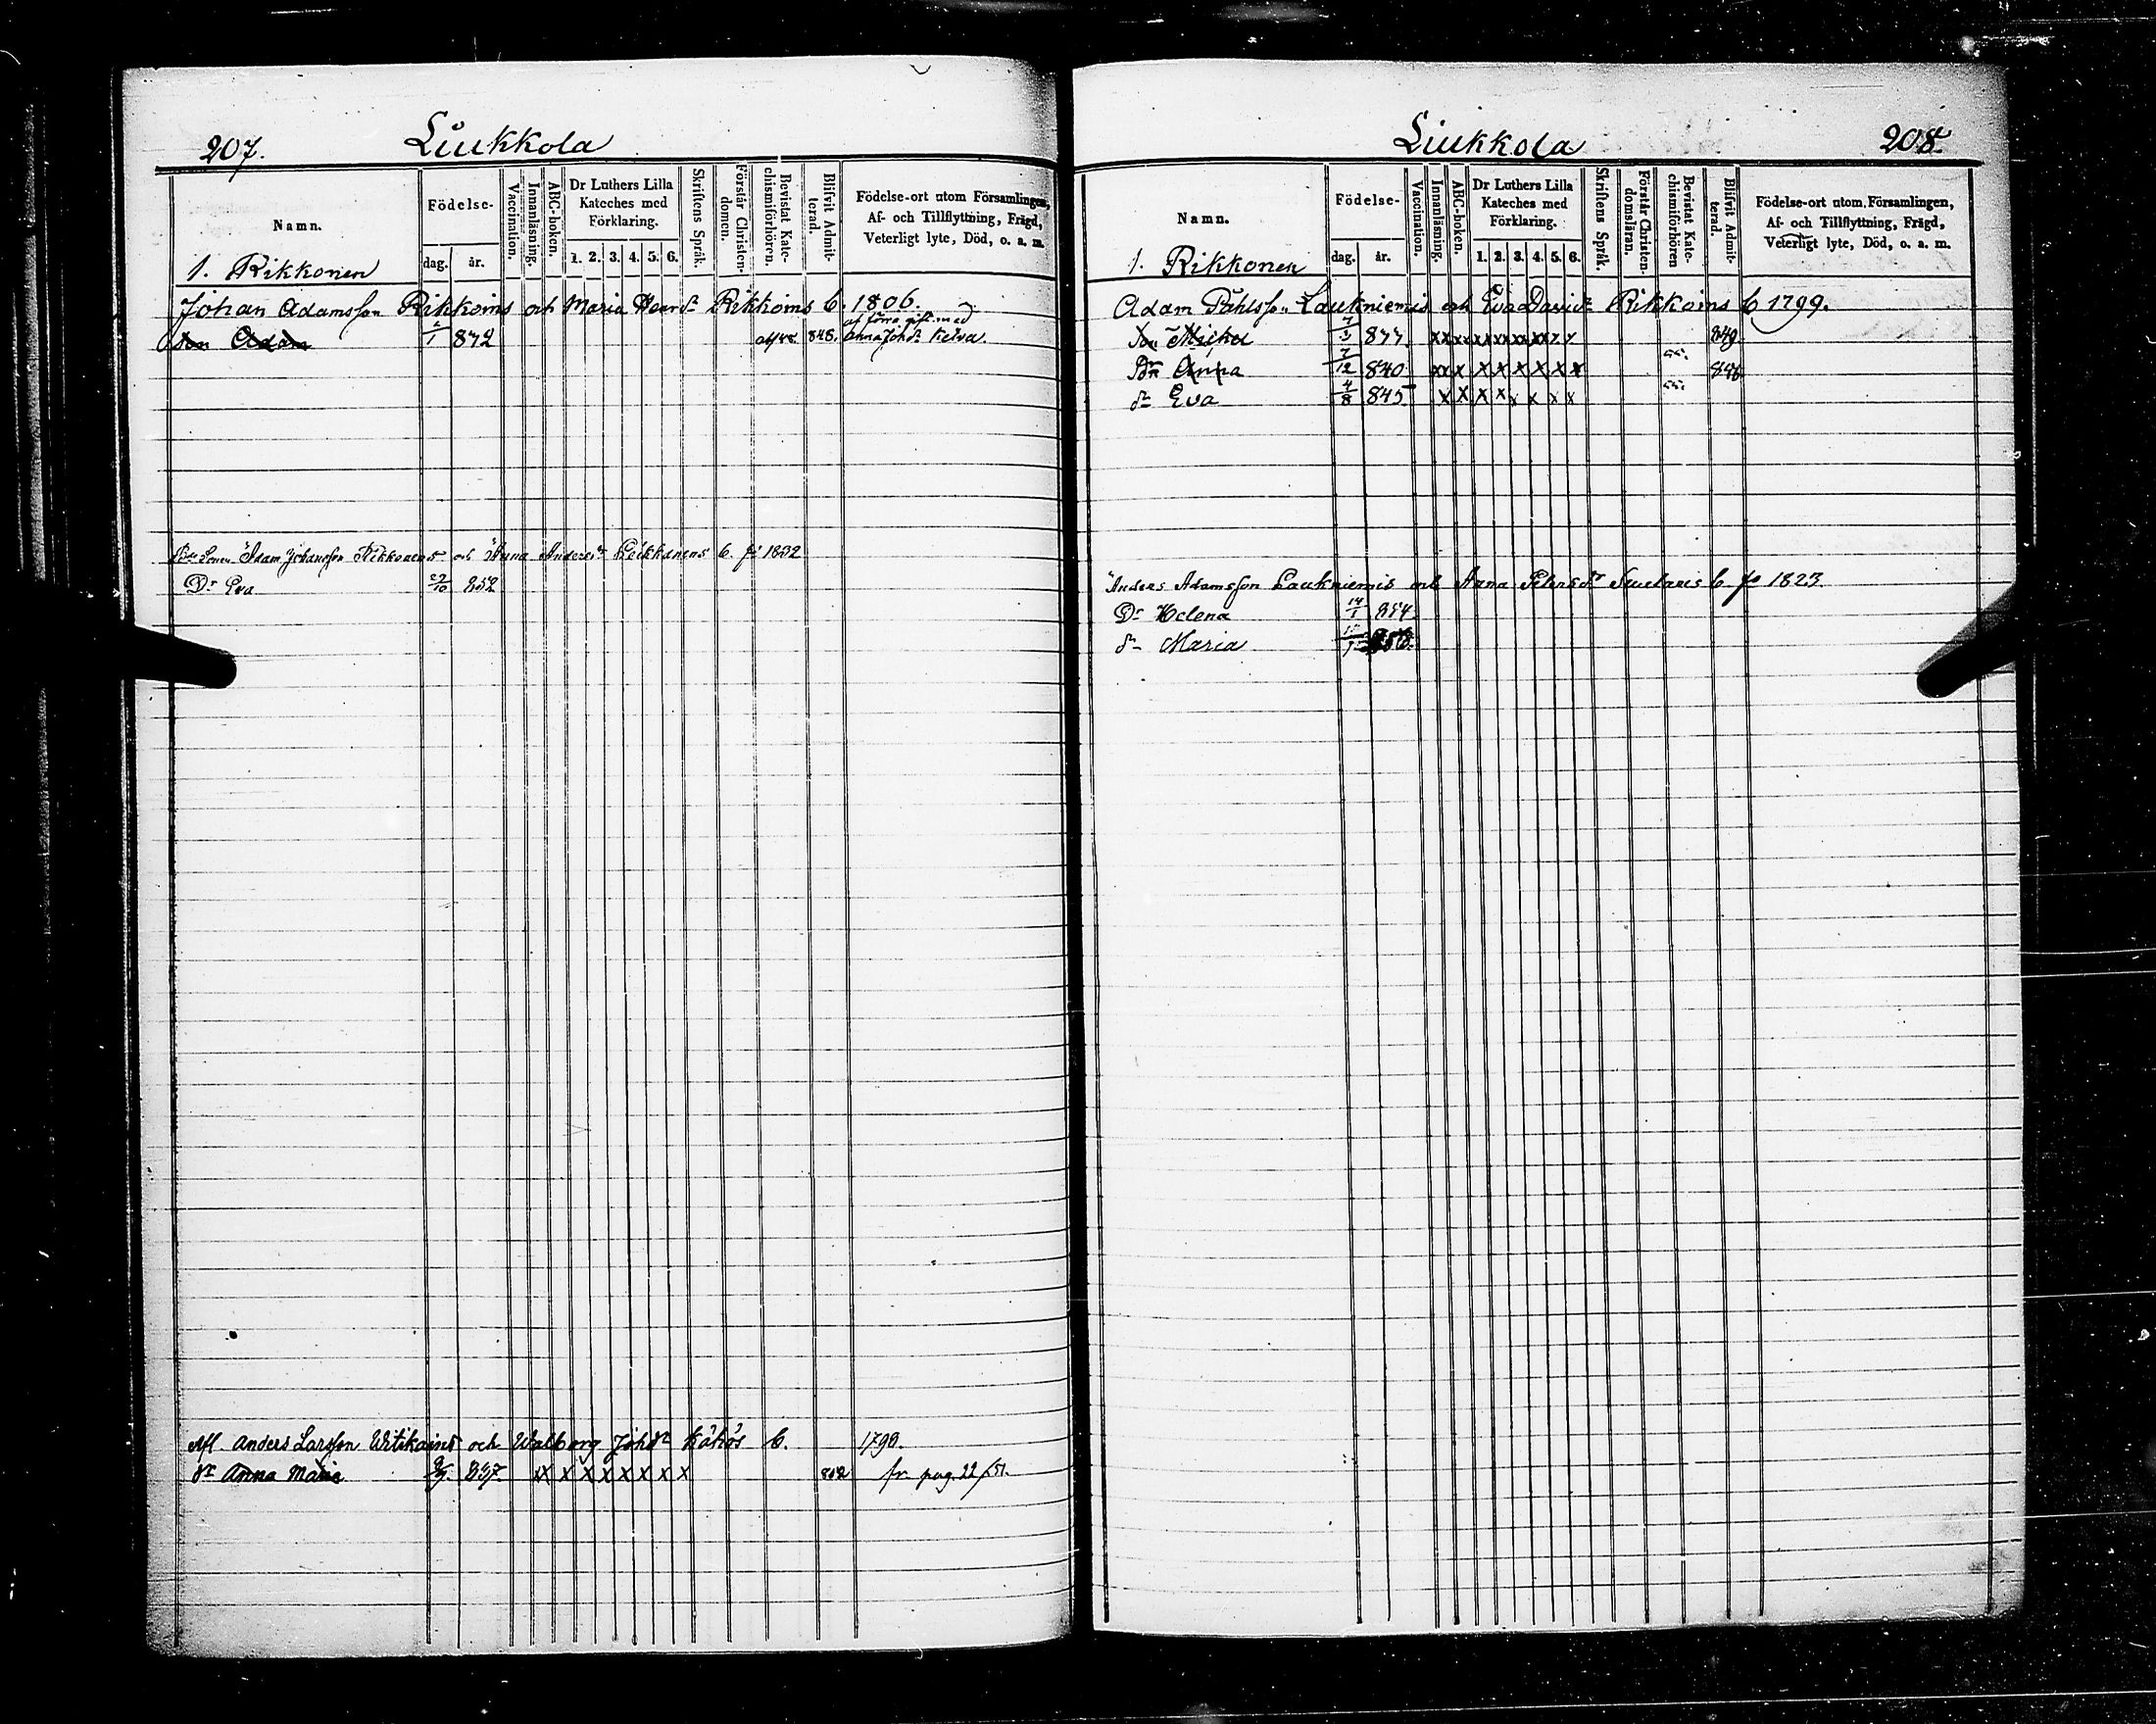 207. Liukkola
Namn.
Födelse-
dag. år.
Vaccination.
Innanläsning.
ABC-boken.
Dr Luthers Lilla Kateches med Förklaring.
1. 2. 3. 4. 5. 6.
Skriftens Språk.
Förstår Christen-domen.
Bevistat Kate-chismiförhören.
Blifvit Admit-terad.
Födelse-ort utom Församlingen,
Af- och Tillflyttning, Frägd,
Veterligt lyte, Död, o. a. m.
1. Rikkonen
Johan Adamsson Rikkoins och Maria Rikkoins b. 1806.
Son Adam 1 832 848. Anna Johdr
Adam Johansson Rikkonens och Anna Andersdr b. 1832
Dr Eva 29/10 852
Afl. Anders Larsson Witikains och Walborg Johdr b. 1790.
dr Anna Maria 837 x x x x x x x x x 852 fr. pag. 22/51.
Liukkola 208.
Namn.
Födelse-
dag. år.
Vaccination.
Innanläsning.
ABC-boken.
Dr Luthers Lilla Kateches med Förklaring.
1. 2. 3. 4. 5. 6.
Skriftens Språk.
Förstår Christen-domsläran.
Bevistat Kate-chismiförhören
Blifvit Admit-terad.
Födelse-ort utom Församlingen,
Af- och Tillflyttning, Frägd,
Veterligt lyte, Död, o. a. m.
1. Rikkonen
Adam Påhlsson Laukniemis och Eva Davidr Rikkoins b 1799.
Son Mickel 849
Dr Anna 7/12 840 x x x x x x x x x
dr Eva 4/8 845 x x x x x x x x
Anders Adamsson Laukniemis och Anna Petersdr b. 1823
Dr Helena 14/1 854
dr Maria